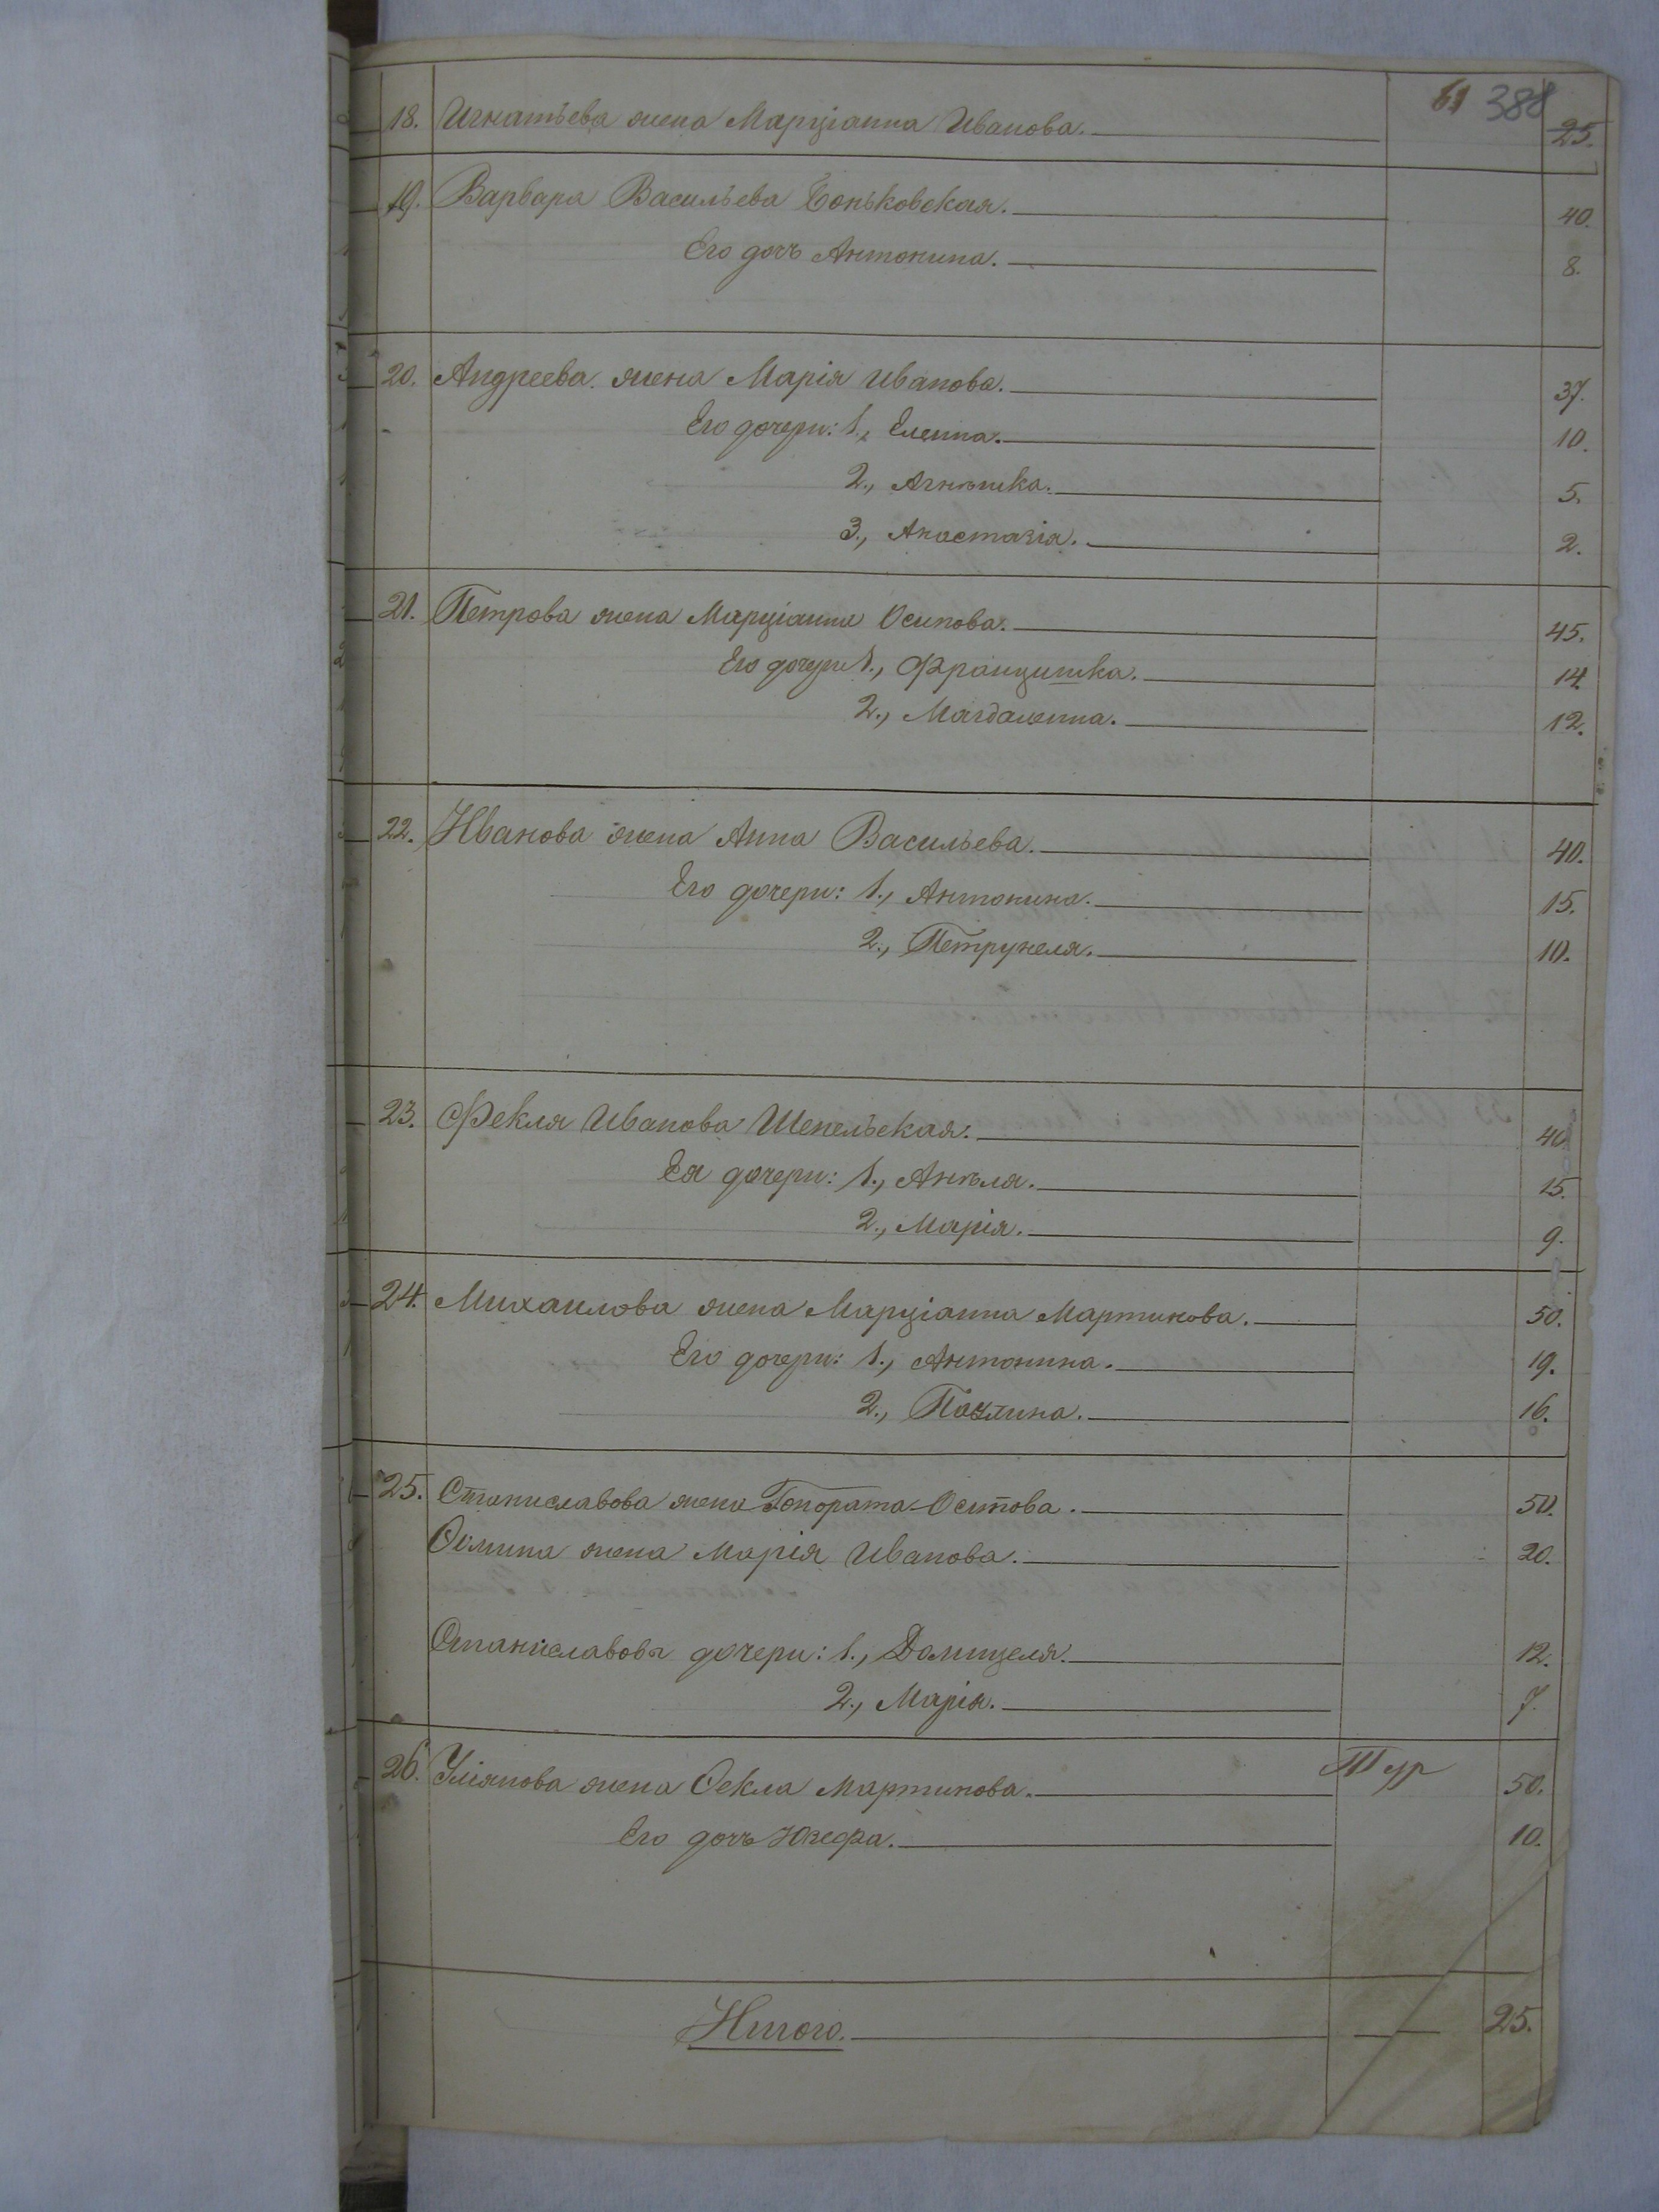 61 388
18. Игнатьева жена Марціанна Иванова. 25.
19. Варвара Васильева Боньковская. 40.
Его дочь Антонина. 8.
20. Андреева жена Марія Иванова. 37.
Его дочери: 1., Еленна. 10.
2., Агнѣшка. 5.
3., Анастазія. 2.
21. Петрова жена Марціанна Осипова. 45.
Его дочери 1., Францишка. 14.
2., Магдаленна. 12.
22. Иванова жена Анна Васильева. 40.
Его дочери: 1., Антонина. 15.
2., Петрунеля. 10.
23. Фекля Иванова Шепельская. 40
Ея дочери: 1., Анѣля. 15.
2., Марія. 9.
24. Михаилова жена Марціанна Мартинова. 50.
Его дочери: 1., Антонина. 19.
2., Паулина. 16.
25. Станиславова жена Гонората Осипова. 50.
Осипа жена Марія Иванова. 20.
Станиславовы дочери: 1., Домицеля. 12.
2., Марія. 7.
26. Уліянова жена Фекла Мартинова. 50.
Его дочь Юзефа. 10.
Итого. 25.